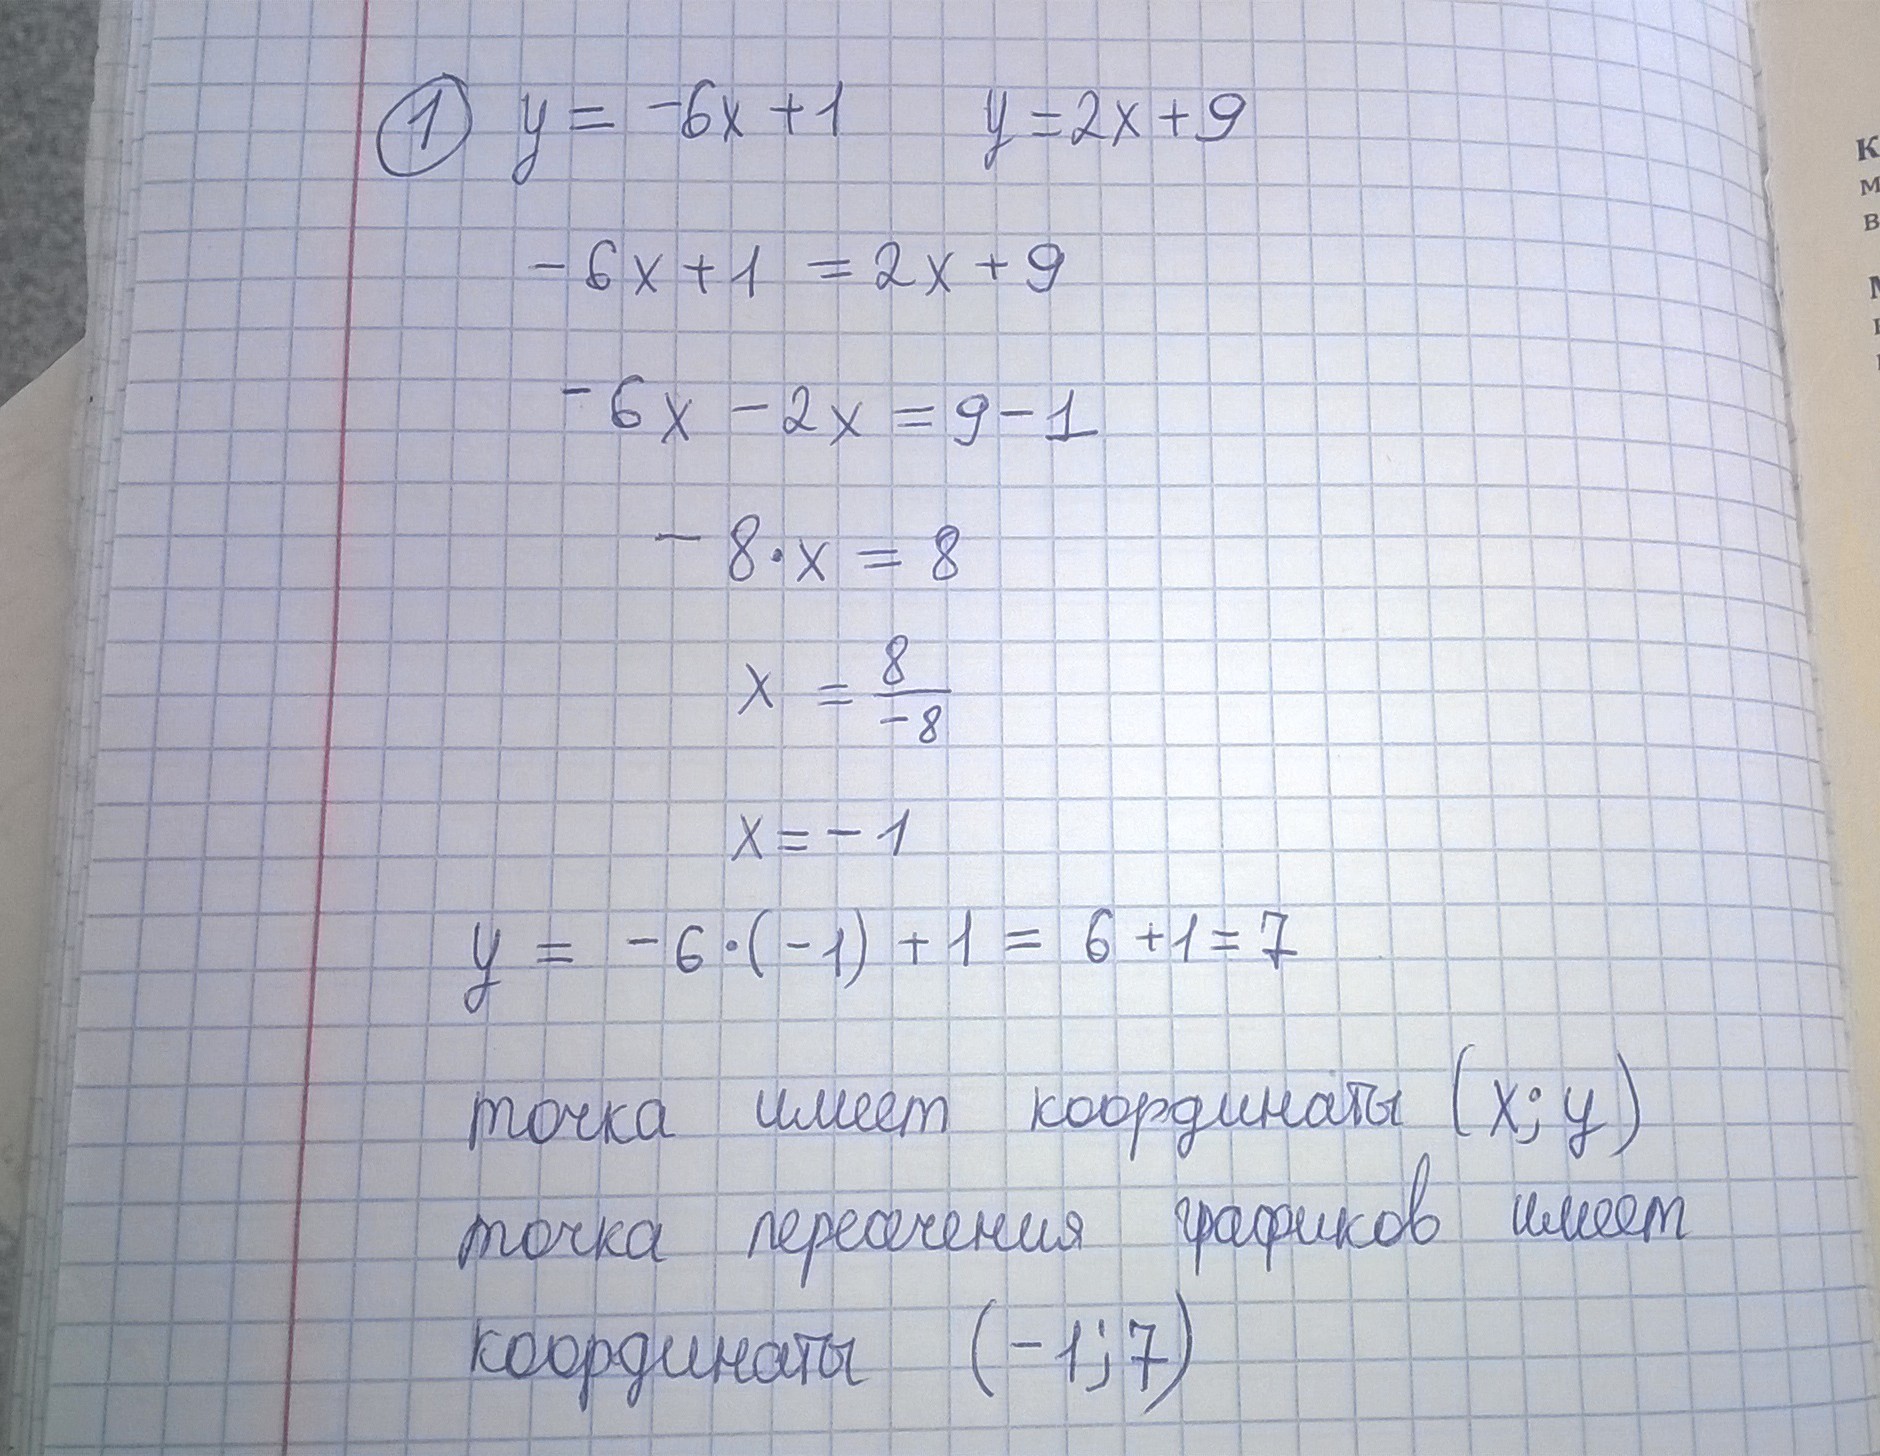 1 y = -6x+1 y=2x+9
-6x+1 =2x+9
-6x-2x=9-1
-8·x=8
x = 8/-8
x=-1
y = -6·(-1)+1 = 6+1=7
точка имеет координаты (x;y)
точка пересечения графиков имеет
координаты (-1;7)
К
м
в